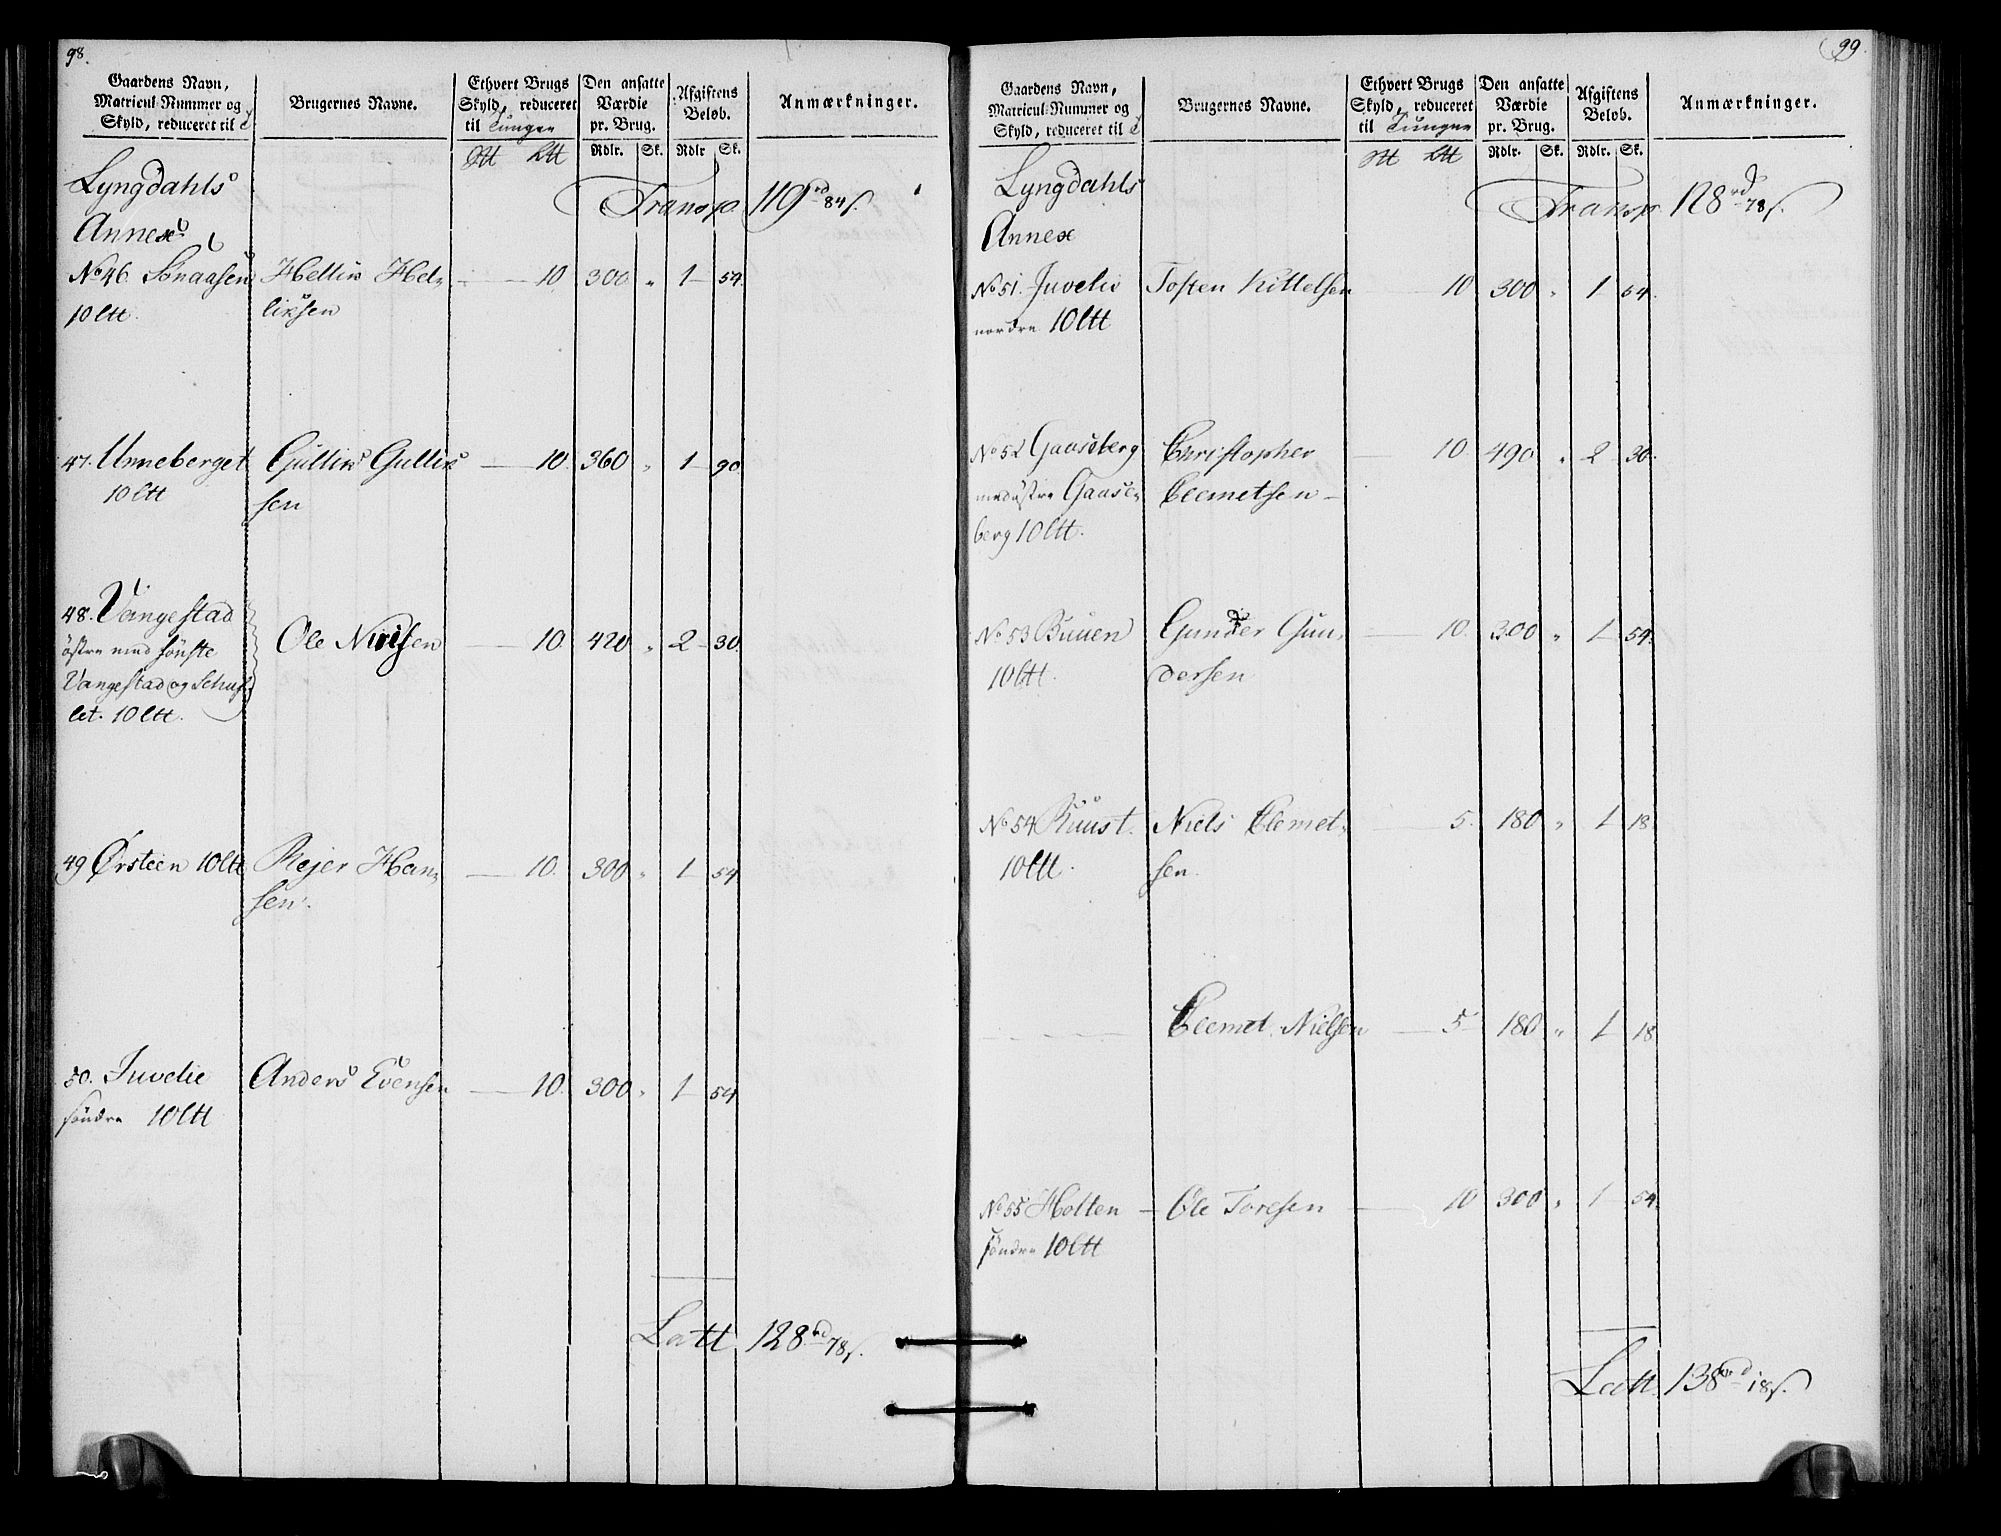 98.
Gaardens Navn,
Matricul-Nummer og
Skyld, reduceret til
Brugernes Navne.
Ethvert Brugs
Skyld, reduceret
til Tunger
Den ansatte
Værdie
pr. Brug.
Afgiftens
Beløb.
Anmærkninger.
Rdlr. Sk. Rdlr Sk.
Lyngdahls
Annex
Transp. 119 rd 84 s.
No 46. Sønaasen Hellik Hel- 10. 300 " 1 54.
10 ltt. liksen
47. Unneberget Gullik Gullik 10. 360 " 1 90
10 ltt sen
48. Vangestad
østre med
Ole Nielsen 10. 420 " 2 30.
Vangestad og
let. 10 ltt.
49 Ørsteen 10 ltt Rejer Han- 10. 300 " 1 54
sen.
50. Juvelie Anders Evensen 10. 300 " 1 54
søndre 10 ltt
Latt 128 rd 78 s.
99.
Gaardens Navn,
Matricul-Nummer og
Skyld, reduceret til
Brugernes Navne.
Ethvert Brugs
Skyld, reduceret
til Tunger
Den ansatte
Værdie
pr. Brug.
Afgiftens
Beløb.
Anmærkninger.
Rdlr. Sk. Rdlr. Sk.
Lyngdahls
Annex
Transp. 128 rd 78 s.
No 51. Juvelie Tosten Kittelsen 10 300 " 1 54.
nordre 10 ltt
No 52 Gaaseberg Christopher 10. 490 " 2 30.
med østre Gaase- Clemetsen
berg 10 ltt.
No 53 Buuen Gunder Gun- 10. 300 " 1 54.
10 ltt. dersen
No 54 Ruust. Niels Clemet- 5. 180 " 1 18
10 ltt. sen.
Clemet Nielsen 5 180 " 1 18
No 55 Holten Ole Toresen 10 300 " 1 54.
søndre 10 ltt
Latt. 138 rd 18 s.